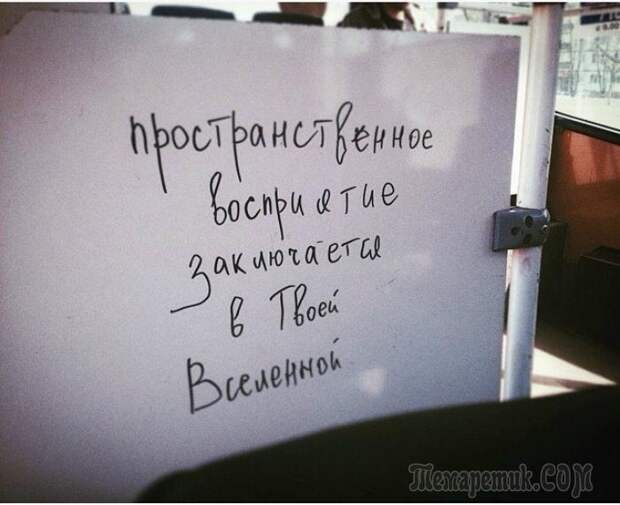 пространственное
восприятие
заключается
в Твоей
Вселенной
Темаретик.COM